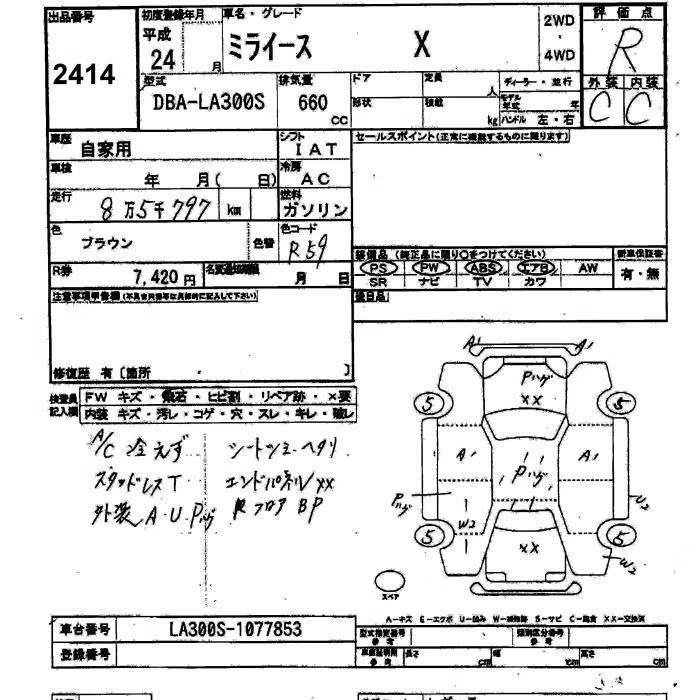 出品番号 初度登録年月 車名・グレード 2WD 評価点
2414 平成 24 月 ミライース X ・ 4WD R
型式 排気量 ドア 定員 人 ディーラー・並行 外装 内装
DBA-LA300S 660 CC 形状 積載 kg モデル年式 年 ハンドル 左・右 C C
車歴 自家用 シフト IAT セールスポイント(正常に機能するものに限ります)
車検 年 月( 日) 冷房 AC
走行 8万5千797 km 燃料 ガソリン
色 ブラウン 色替 色コード R59
装備品 (純正品に限り○をつけてください) 新車保証書
R券 7,420円 名変通知期限 月 日 PS PW ABS エアB AW 有・無
SR ナビ TV カワ
注意事項明書欄(不具合箇所等は具体的に記入して下さい) 後日品
修復歴 有〔箇所 〕
検査員記入欄 FW キズ・飛石・ヒビ割・リペア跡・×要
内装 キズ・汚レ・コゲ・穴・スレ・キレ・破レ
A/C 冷えず シートシミ・ヘタリ
スタッドレスT エンドパネルXX
外装 A・U Pハゲ R フロア BP
A1 A1
Pハゲ
XX
5 5
A1 Pハゲ A1
Pハゲ W2 U2
5 XX 5
W2
スペア
A-キズ E-エクボ U-凹み W-補修跡 S-サビ C-腐食 XX-交換済
車台番号 LA300S-1077853 型式指定番号 参考 類別区分番号 参考
登録番号 車庫証明用 参考 長さ cm 幅 cm 高さ cm